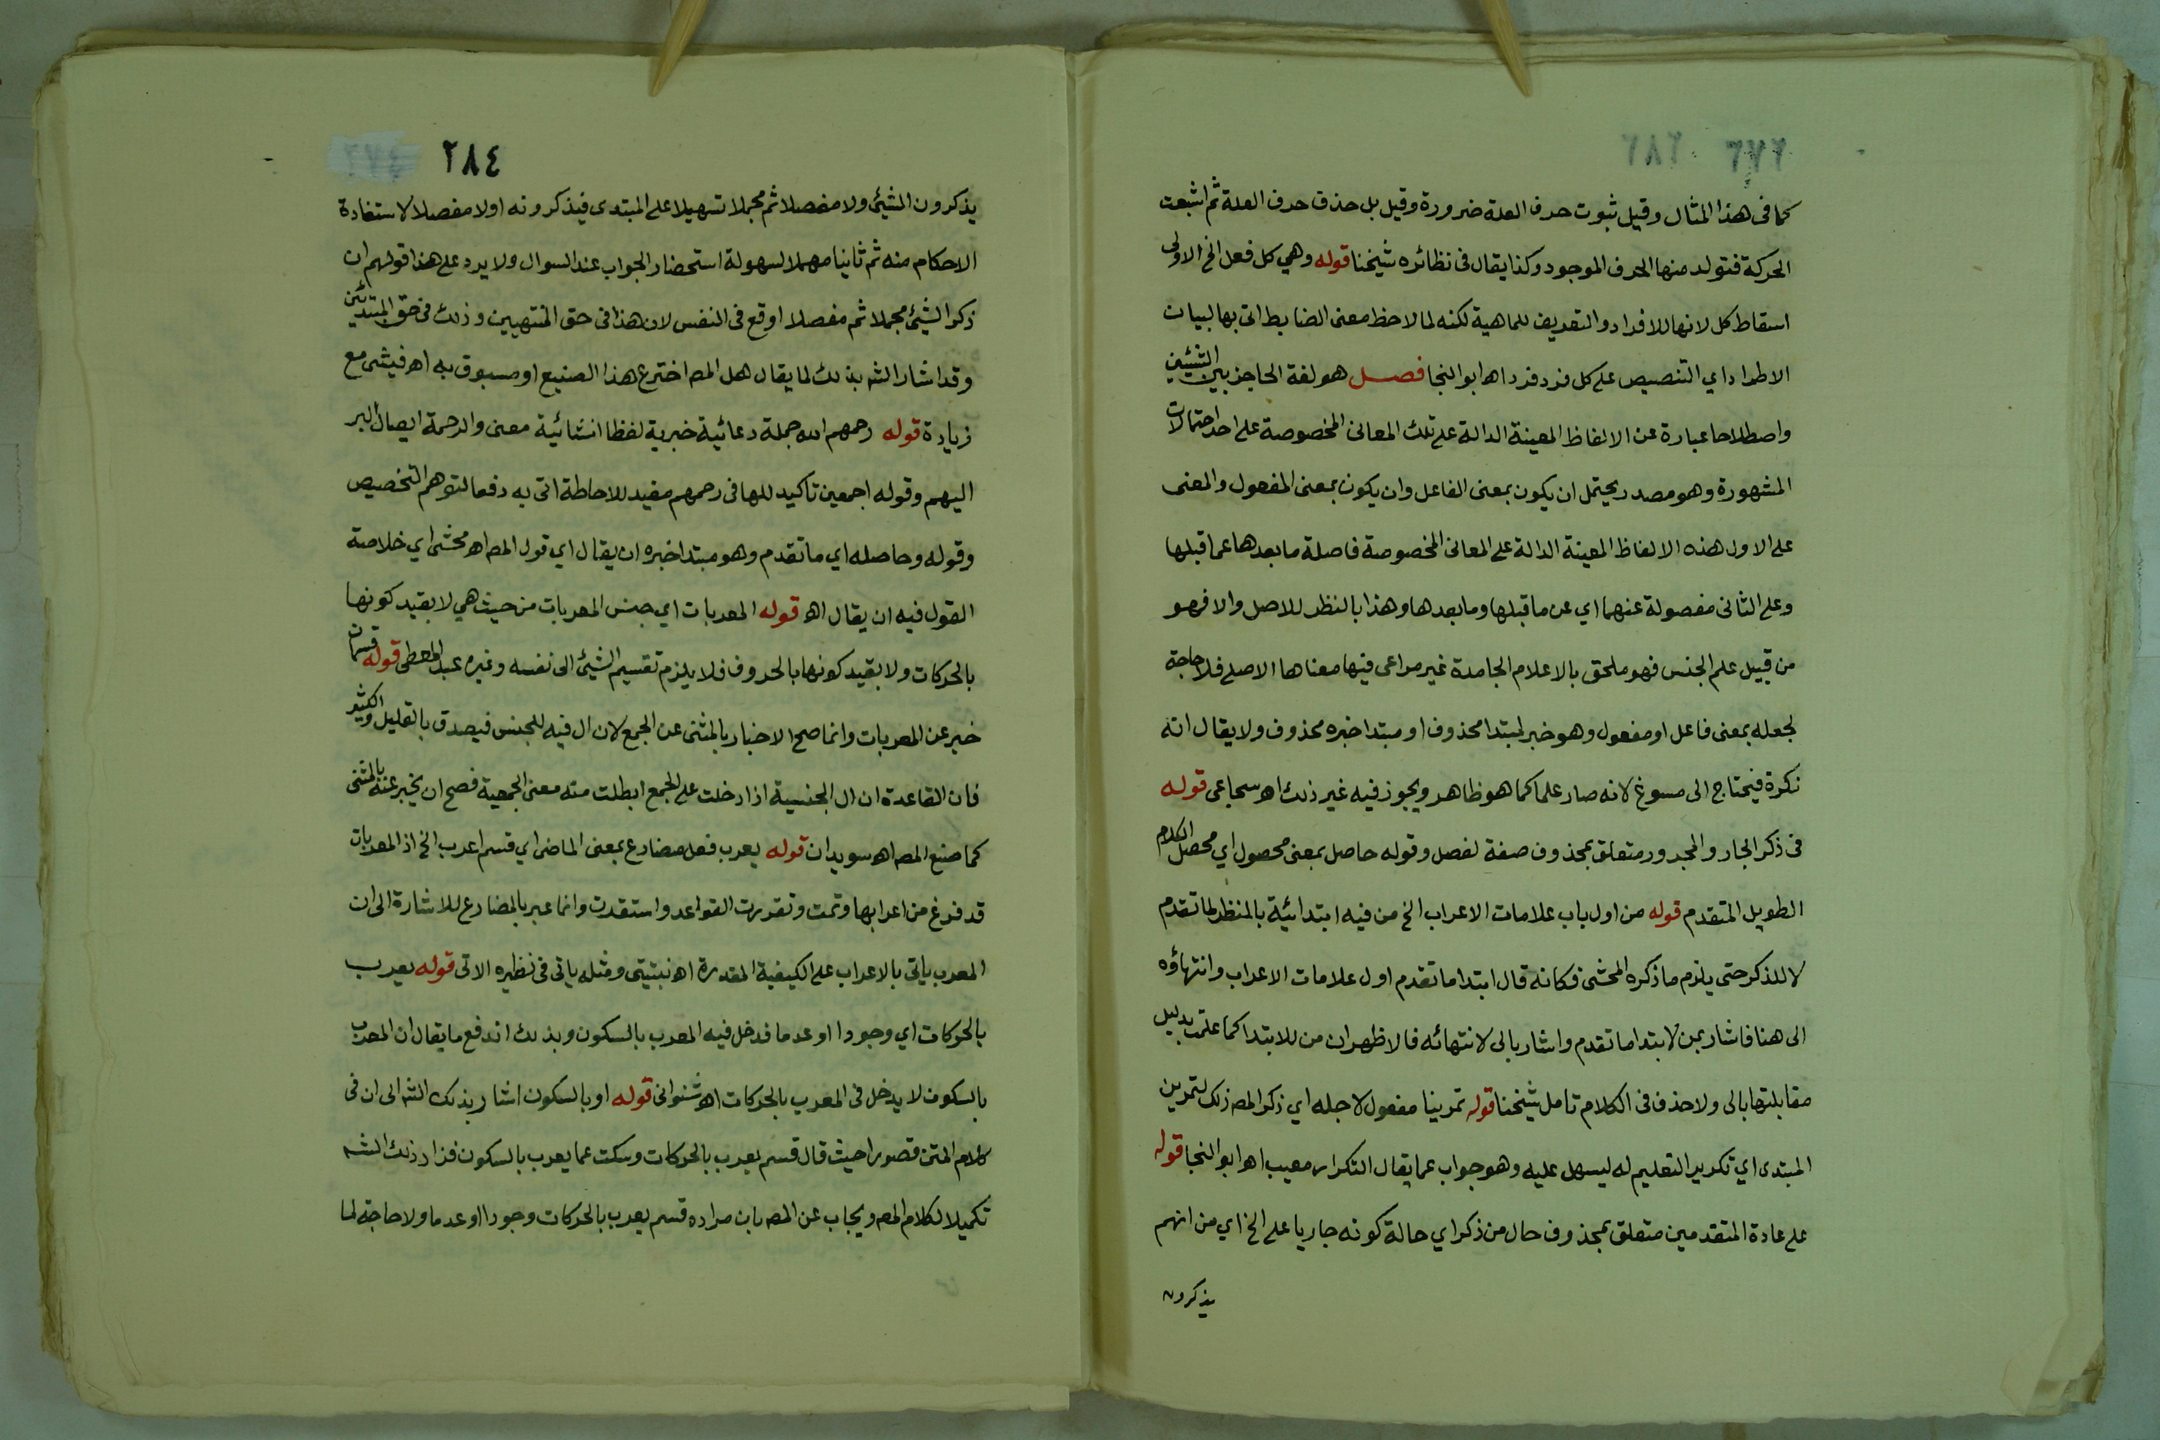 كما فى هذا المثال وقيل ثبوت حرف العلة ضرورة وقيل بل حذف حرف العلة ثم اشبعت
الحركة فتولد منها الحرف الموجود وكذا يقال فى نظائره شيخنا قوله وهي كل فعل الخ الاولى
اسقاط كل لانها للافراد والتعريف للماهية لكنه لما لاحظ معنى الضابط اتى بها لبيان
الاطراد اي التنصيص على كل فرد فرد اه ابو النجا فصل هو لغة الحاجز بين الشيئين
واصطلاحا عبارة عن الالفاظ المعينة الدالة على تلك المعانى المخصوصة على احد احتمالات
المشهورة وهو مصدر يحتمل ان يكون بمعنى الفاعل وان يكون بمعنى المفعول والمعنى
على الاول هذه الالفاظ المعينة الدالة على المعانى المخصوصة فاصلة ما بعدها عما قبلها
وعلى الثانى مفصولة عنهما اي عن ما قبلها وما بعدها وهذا بالنظر للاصل والا فهو
من قبيل علم الجنس فهو ملحق بالاعلام الجامدة غير مراعى فيها معناها الاصلى فلا حاجة
لجعله بمعنى فاعل او مفعول وهو خبر لمبتدا محذوف او مبتدا خبره محذوف ولا يقال انه
نكرة فيحتاج الى مسوغ لانه صار علما كما هو ظاهر ويجوز فيه غير ذلك اه سجاعى قوله
فى ذكر الجار والمجرور متعلق بمحذوف صفة لفصل وقوله حاصل بمعنى محصول اي محصل الكلام
الطويل المتقدم قوله من اول باب علامات الاعراب الخ من فيه ابتدائية بالنظر لما تقدم
لا للذكر حتى يلزم ما ذكره المحشى فكانه قال ابتدا ما تقدم اول علامات الاعراب وانتهاؤه
الى هنا فاشار بمن لابتدا ما تقدم واشار بالى لانتهائه فالاظهر ان من للابتدا كما علمت بدليل
مقابلتها بالى ولا حذف فى الكلام تامل شيخنا قوله تمرينا مفعول لاجله اي ذكر المص ذلك لتمرين
المبتدى اي تكرير التعليم له ليسهل عليه وهو جواب عما يقال التكرار معيب اه ابو النجا قوله
على عادة المتقدمين متعلق بمحذوف حال من ذكر اي حالة كونه جاريا على الخ اي من انهم
يذكرون
٢٨٤
يذكرون الشيئ ولا مفصلا ثم مجملا تسهيلا على المبتدى فيذكرونه اولا مفصلا لاستفادة
الاحكام منه ثم ثانيا مهملا لسهولة استحضار الجواب عند السوال ولا يرد على هذا قولهم ان
ذكر الشيئ مجملا ثم مفصلا اوقع فى النفس لان هذا فى حق المنتهيين وذلك فى حق المبتدئين
وقد اشار الشه بذلك لما يقال هل المص اخترع هذا الصنيع او مسبوق به اه فيشى مع
زيادة قوله رحمهم الله جملة دعائية خبرية لفظا انشائية معنى والرحمة ايصال البر
اليهم وقوله اجمعين تاكيد للها فى رحمهم مفيد للاحاطة اتى به دفعا لتوهم التخصيص
وقوله وحاصله اي ما تقدم وهو مبتدا خبره ان يقال اي قول المص اه محشى اي خلاصة
القول فيه ان يقال اه قوله المعربات اي جنس المعربات من حيث هي لا بقيد كونها
بالحركات ولا بقيد كونها بالحروف فلا يلزم تقسيم الشيئ الى نفسه وغيره عبد المعطى قوله قسمان
خبر عن المعربات وانما صح الاخبار بالمثنى عن الجمع لان ال فيه للجنس فيصدق بالقليل والكثير
فان القاعدة ان ال الجنسية اذا دخلت على الجمع ابطلت منه معنى الجمعية فصح ان يخبر عنه بالمثنى
كما صنع المص اه سويدان قوله يعرب فعل مضارع بمعنى الماضى اي قسم اعرب الخ اذ المعربات
قد فرغ من اعرابها وتمت وتقررت القواعد واستقرت وانما عبر بالمضارع للاشارة الى ان
المعرب ياتى بالاعراب على الكيفية المقدرة اه نبتيتى ومثله ياتى فى نظيره الاتى قوله يعرب
بالحركات اي وجودا او عدما فدخل فيه المعرب بالسكون وبذلك اندفع ما يقال ان المعرب
بالسكون لا يدخل فى المعرب بالحركات اه شنوانى قوله او بالسكون اشار بذلك الشه الى ان فى
كلام المتن قصورا حيث قال قسم يعرب بالحركات وسكت عما يعرب بالسكون فزاد ذلك الشه
تكميلا لكلام المص ويجاب عن المص بان مراده قسم يعرب بالحركات وجودا او عدما ولا حاجة لما